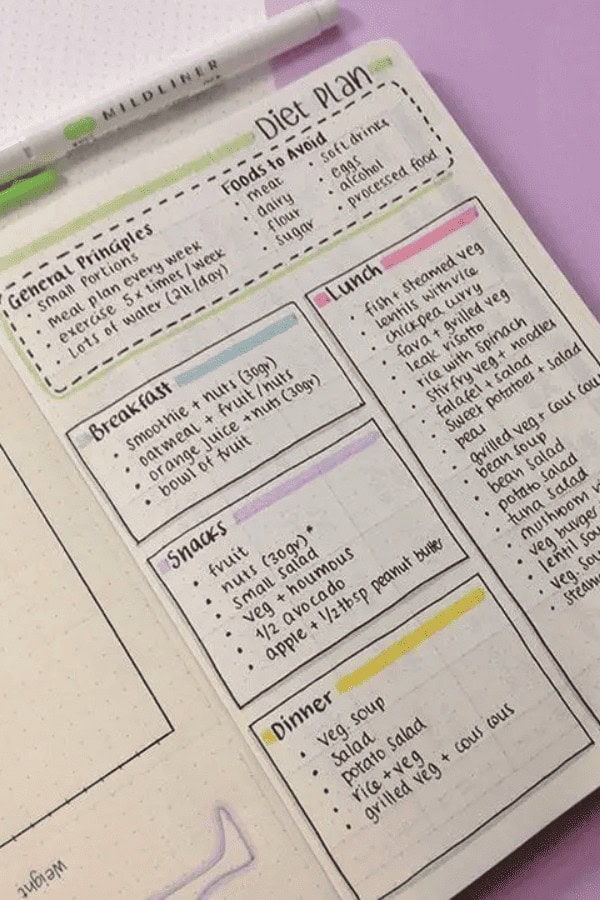 MILDLINER
Diet Plan
General Principles
• Small Portions
• meal plan every week
• exercise 5x times/week
• Lots of water (2lt/day)
Foods to Avoid
• meat
• dairy
• flour
• sugar
• soft drinks
• eggs
• alcohol
• processed food
Breakfast
• smoothie + nuts (30gr)
• oatmeal + fruit/nuts
• orange juice + nuts (30gr)
• bowl of fruit
Snacks
• fruit
• nuts (30gr)*
• small salad
• veg + houmous
• 1/2 avocado
• apple + 1/2 tbsp peanut butter
Dinner
• veg soup
• salad
• potato salad
• rice + veg
• grilled veg + cous cous
Lunch
• fish + steamed veg
• lentils with rice
• chickpea curry
• fava + grilled veg
• leak risotto
• rice with spinach
• stirfry veg + noodles
• falafel + salad
• sweet potatoes + salad
• peas
• grilled veg + cous cou
• bean soup
• bean salad
• potato salad
• tuna salad
• mushroom
• veg burger
• lentil sou
• veg sou
• steam
Weight